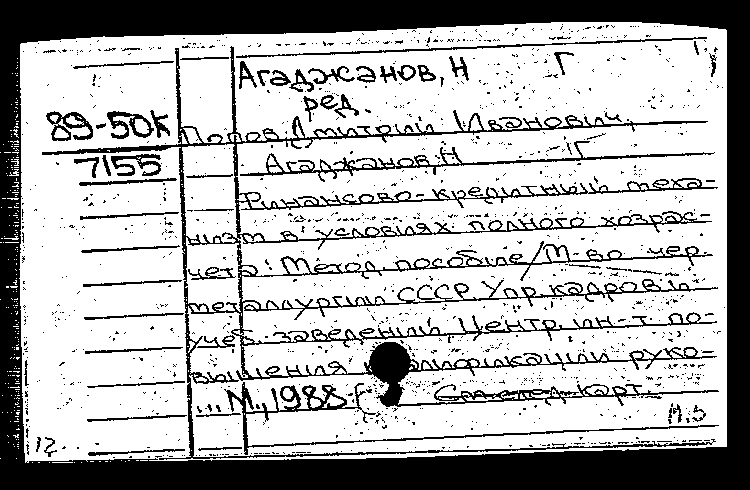 Агаджанов, Н Г
ред.
89-50К Попов, Дмитрий Иванович,
7155 Агаджанов, Н Г
Финансово-кредитный меха-
низм в условиях полного хозрас-
чета: Метод. пособие/М-во чер.
металлургии СССР. Упр. кадров и
учеб. заведений, Центр. ин-т по-
вышения квалификации руко-
... М., 1988 См. след. карт.
М.Э
12